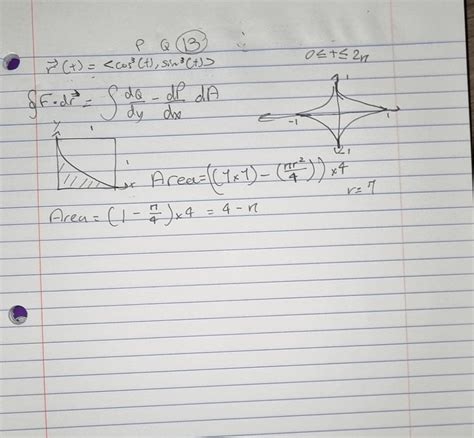 P Q 13
r⃗(t) = <cos³(t), sin³(t)> 0≤t≤2π
∮F·dr⃗ = ∫ dQ/dy - dP/dx dA
1
-1 1
-1
y 1
1
x
Area = ((1×1) - (πr²/4)) ×4
r=1
Area = (1 - π/4) ×4 = 4 - π